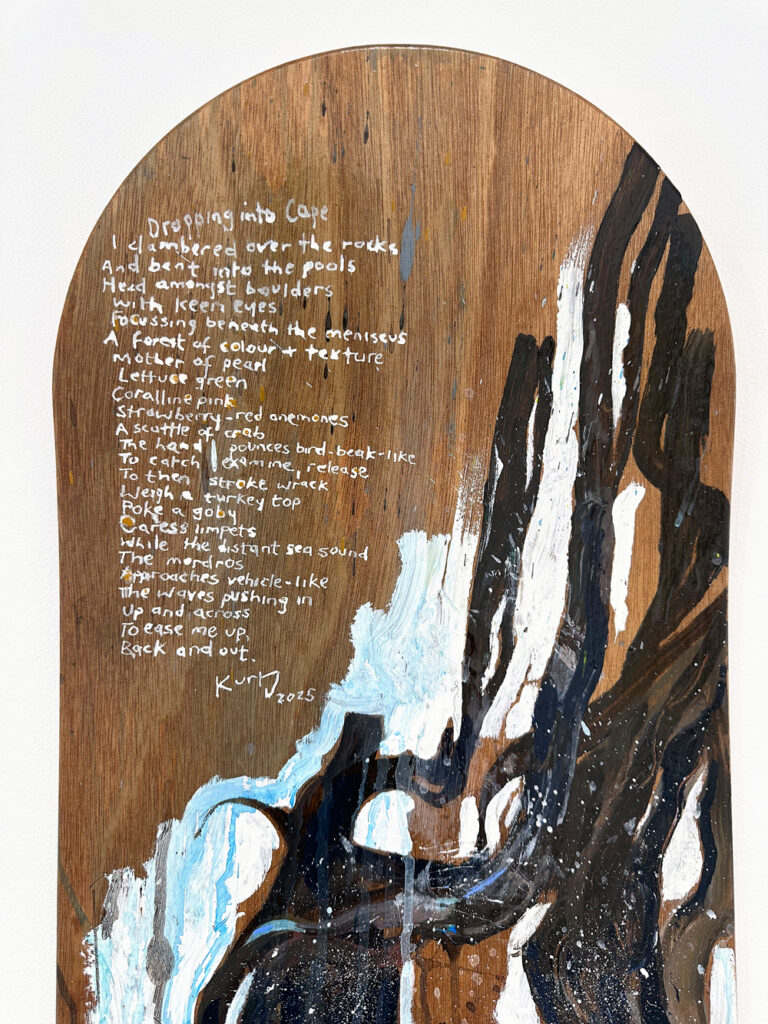 Dropping into Cape
I clambered over the rocks
And bent into the pools
Head amongst boulders
with keen eyes
Focussing beneath the meniscus
A forest of colour + texture
Mother of pearl
Lettuce green
Coralline pink
Strawberry-red anemones
A scuttle of crab
The hand pounces bird-beak-like
To catch, examine, release
To then stroke wrack
Weigh a turkey top
Poke a goby
Caress limpets
While the distant sea sound
The mordros
Approaches vehicle-like
The waves pushing in
Up and across
To ease me up,
Back and out.
Kurt 2025